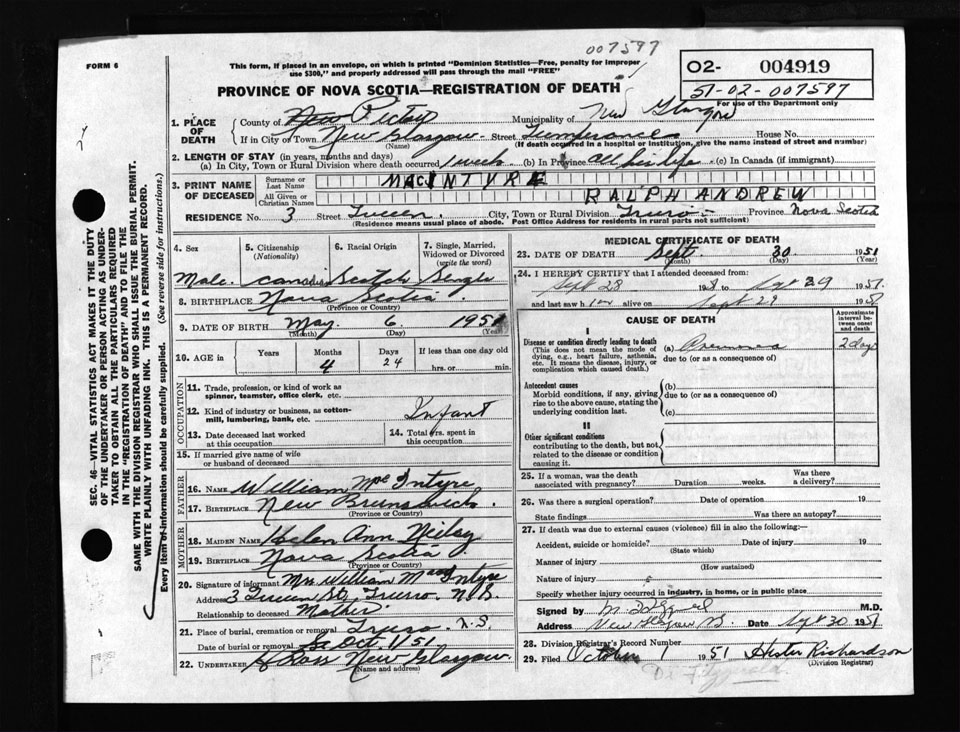 007597
FORM 6
This form, if placed in an envelope, on which is printed "Dominion Statistics—Free, penalty for improper
use $300," and properly addressed will pass through the mail "FREE"
O2- 004919
51-02-007597
For use of the Department only
PROVINCE OF NOVA SCOTIA—REGISTRATION OF DEATH
1. PLACE OF DEATH
County of Pictou Municipality of New Glasgow
If in City or Town New Glasgow Street Temperance House No.
(Name) (If death occurred in a hospital or institution, give the name instead of street and number)
2. LENGTH OF STAY (in years, months and days)
(a) In City, Town or Rural Division where death occurred 1 week (b) In Province all his life (c) In Canada (if immigrant)
3. PRINT NAME OF DECEASED
Surname or Last Name MACINTYRE
All Given or Christian Names RALPH ANDREW
RESIDENCE No. 3 Street Queen City, Town or Rural Division Truro Province Nova Scotia
(Residence means usual place of abode. Post Office Address for residents in rural parts not sufficient)
4. Sex
Male
5. Citizenship (Nationality)
6. Racial Origin
Scotch
7. Single, Married, Widowed or Divorced (write the word)
Single
8. BIRTHPLACE Nova Scotia
(Province or Country)
9. DATE OF BIRTH May 6 1951
(Month) (Day) (Year)
10. AGE in Years Months 4 Days 24 If less than one day old
hrs. or min.
OCCUPATION
11. Trade, profession, or kind of work as spinner, teamster, office clerk, etc.
12. Kind of industry or business, as cotton-mill, lumbering, bank, etc. Infant
13. Date deceased last worked at this occupation
14. Total yrs. spent in this occupation
15. If married give name of wife or husband of deceased
FATHER
16. Name William McIntyre
17. Birthplace New Brunswick
(Province or Country)
MOTHER
18. MAIDEN NAME Helen Ann
19. BIRTHPLACE Nova Scotia
(Province or Country)
20. Signature of informant Mrs William MacIntyre
Address 3 Queen St. Truro N.S.
Relationship to deceased Mother
21. Place of burial, cremation or removal Truro N.S.
Date of burial or removal Oct 1/51
22. UNDERTAKER Ross New Glasgow
(Name and address)
MEDICAL CERTIFICATE OF DEATH
23. DATE OF DEATH Sept. 30 1951
(Month) (Day) (Year)
24. I HEREBY CERTIFY that I attended deceased from:
Sept 28 to Sept 29 1951
and last saw him alive on Sept 29 19
CAUSE OF DEATH
Approximate interval between onset and death
I
Disease or condition directly leading to death
(This does not mean the mode of dying, e.g., heart failure, asthenia, etc. It means the disease, injury, or complication which caused death.)
(a) 2 days
due to (or as a consequence of)
Antecedent causes
Morbid conditions, if any, giving rise to the above cause, stating the underlying condition last.
(b)
due to (or as a consequence of)
(c)
II
Other significant conditions
contributing to the death, but not related to the disease or condition causing it.
25. If a woman, was the death associated with pregnancy? Duration weeks. Was there a delivery?
26. Was there a surgical operation? Date of operation 19
State findings Was there an autopsy?
27. If death was due to external causes (violence) fill in also the following:—
Accident, suicide or homicide? Date of injury 19
(State which)
Manner of injury
(How sustained)
Nature of injury
Specify whether injury occurred in industry, in home, or in public place
Signed by M.D.
Address New Glasgow Date Sept 30 1951
28. Division Registrar's Record Number
29. Filed October 1 1951 Hester Richardson
(Division Registrar)
SEC. 46—VITAL STATISTICS ACT MAKES IT THE DUTY
OF THE UNDERTAKER OR PERSON ACTING AS UNDER-
TAKER TO OBTAIN ALL THE PARTICULARS REQUIRED
IN THE "REGISTRATION OF DEATH" AND TO FILE THE
SAME WITH THE DIVISION REGISTRAR WHO SHALL ISSUE THE BURIAL PERMIT.
WRITE PLAINLY WITH UNFADING INK. THIS IS A PERMANENT RECORD.
Every item of information should be carefully supplied. (See reverse side for instructions.)